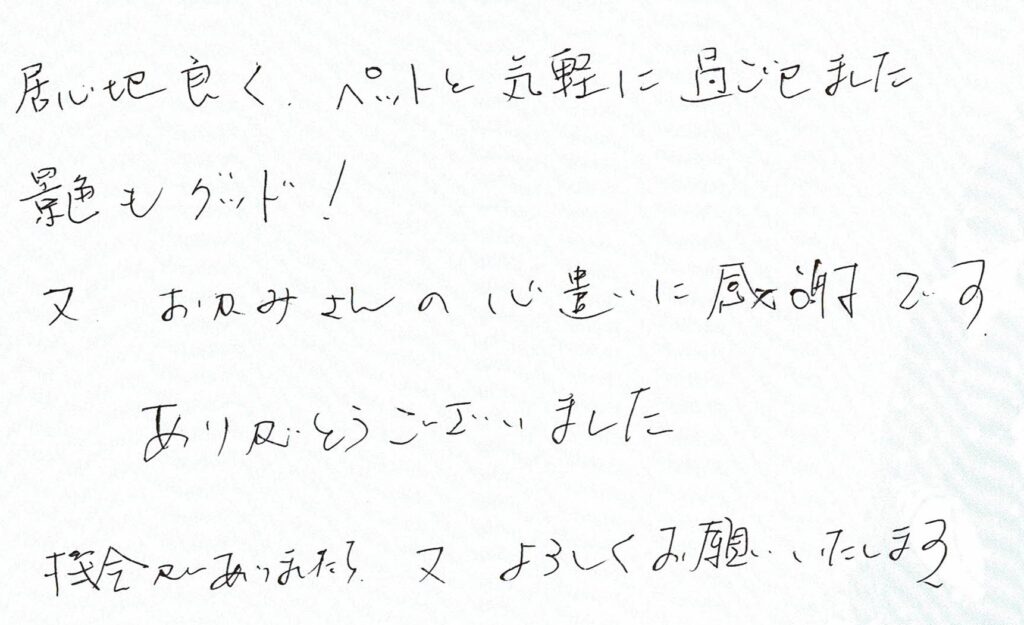 居心地良く、ペットと気軽に過ごせました
景色もグッド!
又、おかみさんの心遣いに感謝です。
ありがとうございました
機会がありましたら、又よろしくお願いいたします